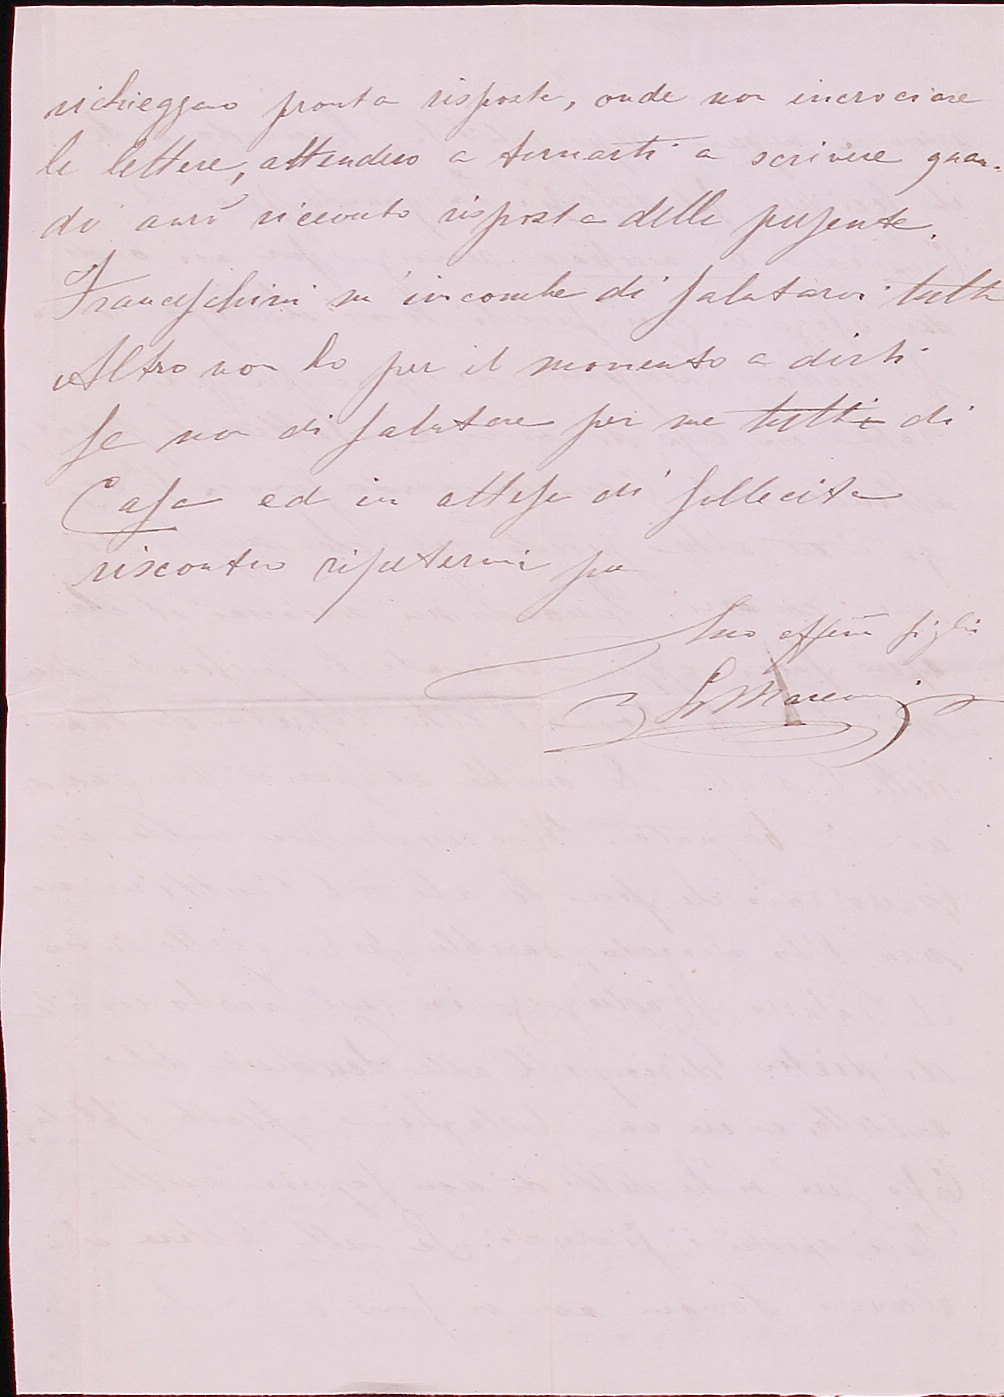 richieggano pronta risposta, onde non incrociare
le lettere, attendero a tornarti a scrivere quan-
do avrò ricevuto risposta della presente.
Franceschini m'incombe di salutarvi tutti
Altro non ho per il momento a dirti
se non di salutare per me tutti di
Casa ed in attesa di sollecita
riscontro ripetermi pu
Suo affmo figlio
G Marconi